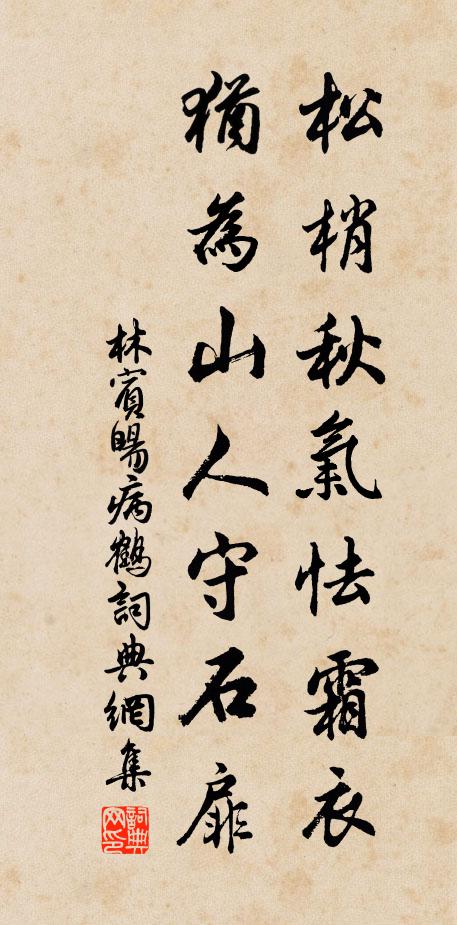 松梢秋氣怯霜衣
猶為山人守石扉
林賓暘病鶴詞典網集
詞典網印